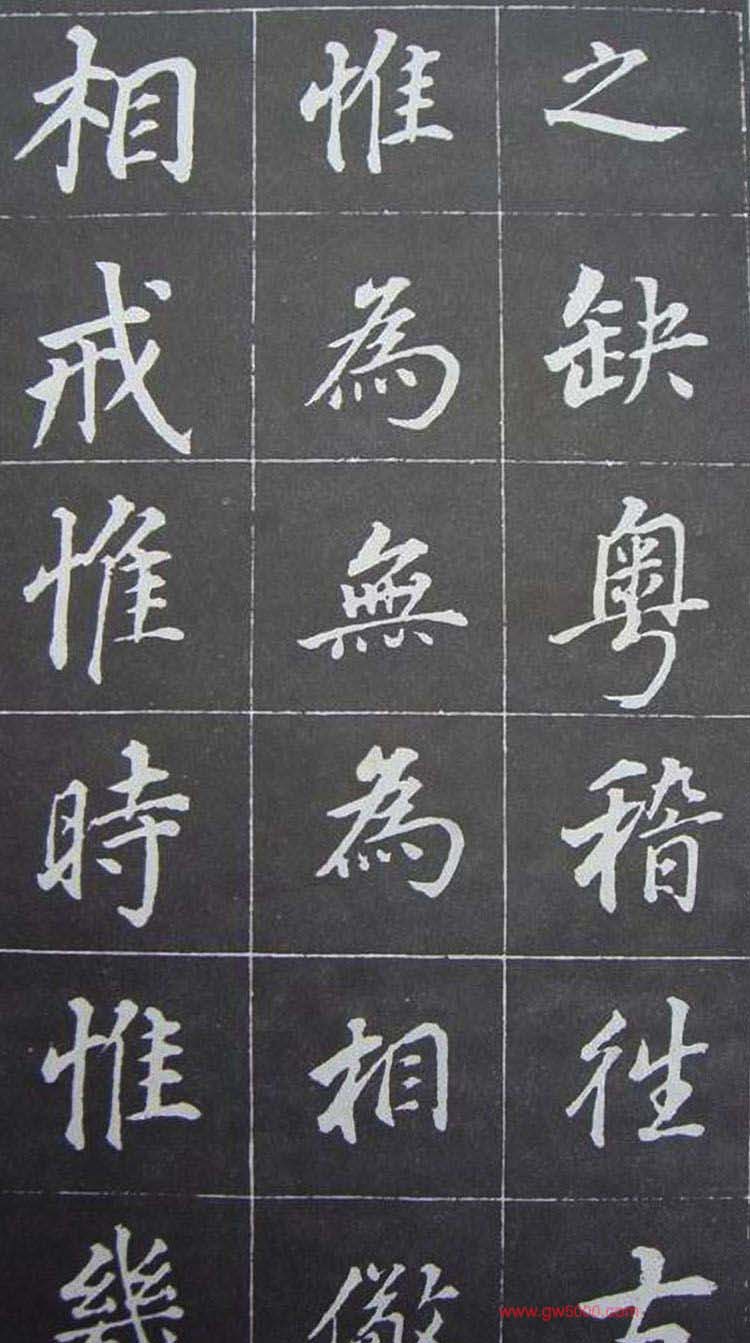 之缺粤稽徃古
惟為無為相儆
相戒惟時惟幾
www.gw5000.com